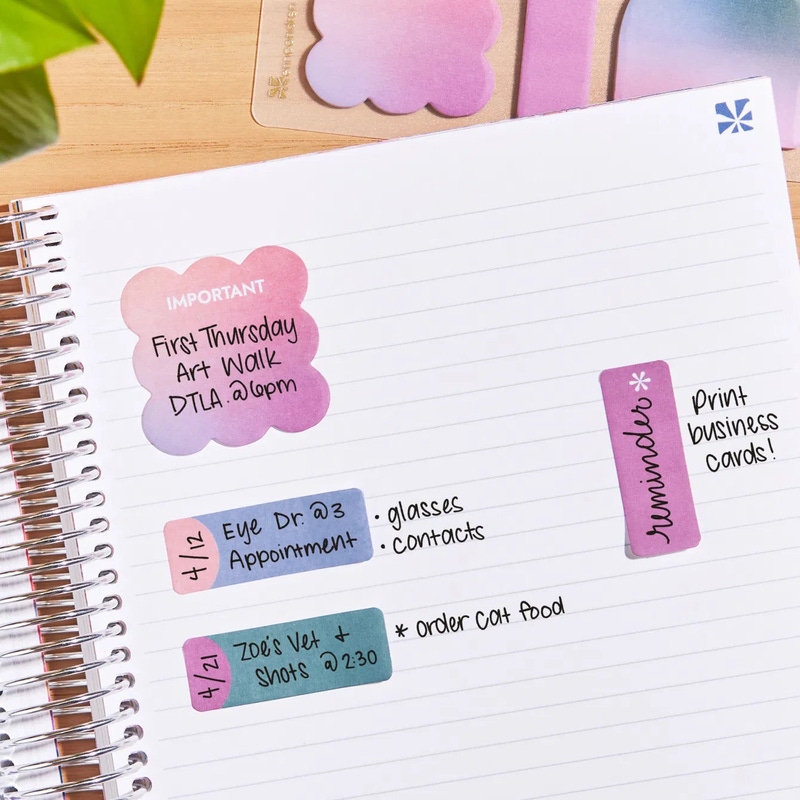 erincondren
IMPORTANT
First Thursday
Art Walk
DTLA.@6pm
reminder*
Print
business
cards!
4/12
Eye Dr. @3
Appointment
• glasses
• contacts
4/21
Zoe's Vet +
Shots @2:30
* order cat food